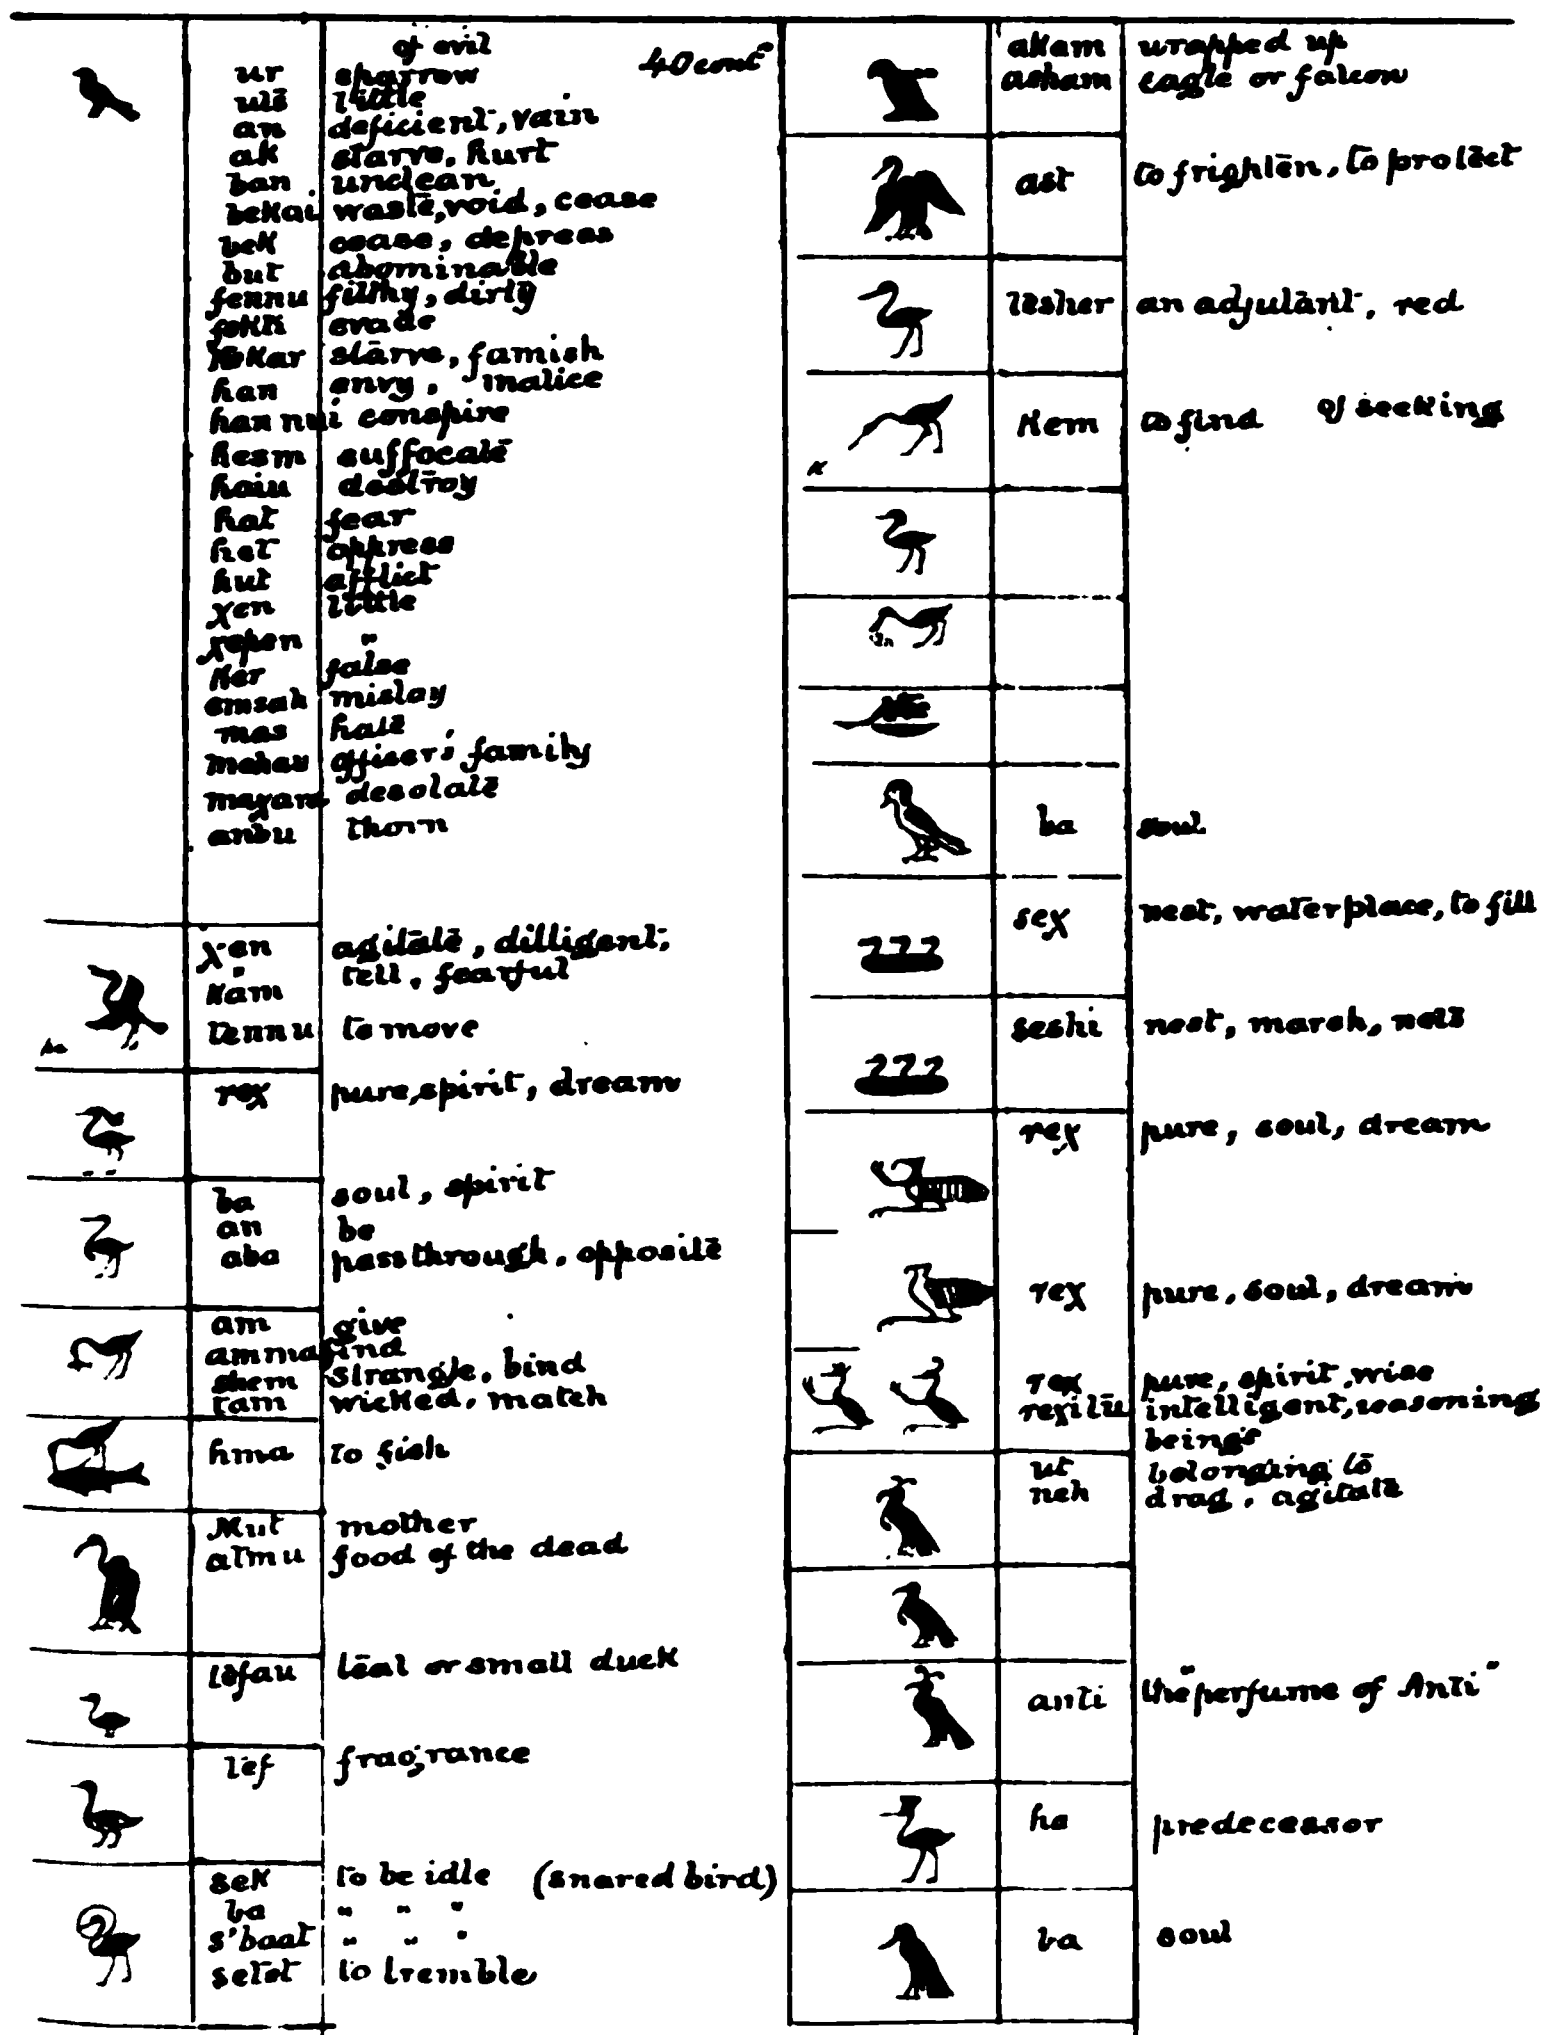 of evil
40 cont^d
ur sparrow
utē little
an deficient, vain
ak starve, hurt
ban unclean
beKai wastē, void, cease
beK cease, depress
but abominable
fennu filthy, dirty
feKK evade
Kar starve, famish
han envy, malice
hannui conspire
hesm suffocatē
haiu destroy
hat fear
het oppress
hut afflict
χen little
χepen "
Ker false
emsah mislay
mas hatē
mehau officer's family
maχare desolatē
anbu thorn
χen agitatē, dilligent,
Kam tell, fearful
tennu to move
reχ pure, spirit, dream
ba soul, spirit
an be
aba pass through, oppositē
am give
amma find
shem strangle, bind
tam wicKed, match
hma to fish
Mut mother
atmu food of the dead
tefau teal or small ducK
tef fragrance
seK to be idle (snared bird)
ba " " "
s'baat " " "
setet to tremble
aKam wrapped up
asham eagle or falcon
ast to frighten, to protect
tesher an adjutant, red
K
Kem to find of seeKing
ba soul
seχ nest, waterplace, to fill
seshi nest, marsh, nets
reχ pure, soul, dream
reχ pure, soul, dream
reχ pure, spirit, wise
reχitu intelligent, reasoning
beings
ut belonging to
neh drag, agitatē
anti the "perfume of Anti"
ha predecessor
ba soul